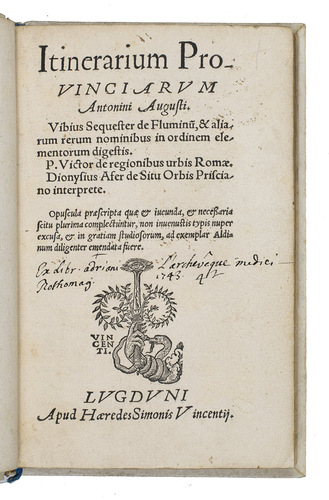 Itinerarium Pro-
VINCIARVM
Antonini Augusti.
Vibius Sequester de Fluminū, & alia-
rum rerum nominibus in ordinem ele-
mentorum digestis.
P. Victor de regionibus urbis Romæ.
Dionysius Afer de Situ Orbis Priscia-
no interprete.
Opuscula præscripta quæ & iucunda, & necessaria
scitu plurima complectuntur, non inuenustis typis nuper
excusa, & in gratiam studiosorum, ad exemplar Aldi-
num diligenter emendata fuere.
Ex Libr. adriani Larchevêque medici
Rothomag. 1743
VIN
CEN
TI.
LVGDVNI
Apud Hæredes Simonis Vincentij.